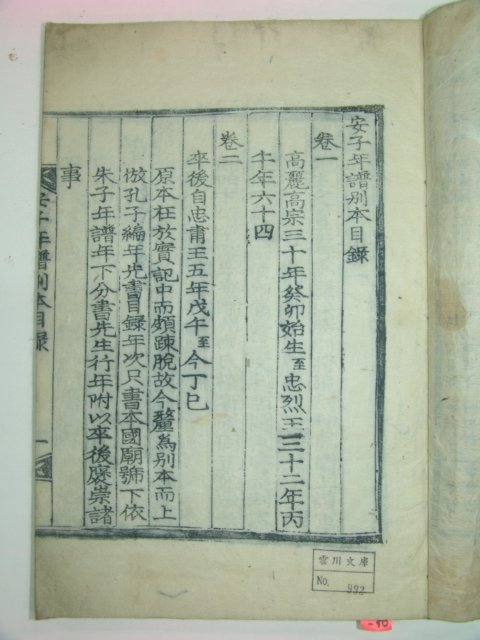 安子年譜別本目錄
卷一
高麗高宗三十年癸卯始生至忠烈王三十二年丙
午年六十四
卷二
卒後自忠肅王五年戊午至今丁巳
原本在於實記中而頗踈脫故今釐爲別本而上
倣孔子編年先書目錄年次只書本國廟號下依
朱子年譜年下分書先生行年附以卒後褒崇諸
事
安子年譜別本目錄
一
雲川文庫
No. 992